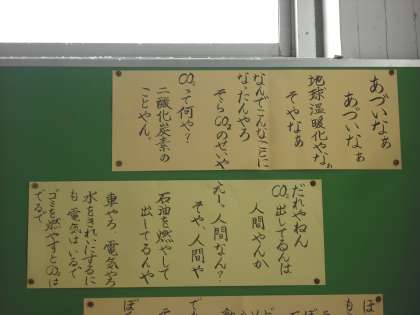 あづいなぁ
あづいなぁ
地球温暖化やなぁ
そやなぁ
なんでこんなことに
なったんやろ
そらCO₂のせいや
CO₂って何や?
二酸化炭素の
ことやん。
だれやねん
CO₂出してるんは
人間やんか
えー。人間なん?
そや、人間や
石油を燃やして
出してるんや
車やろ、電気やろ
水をきれいにするに
も電気はいるで
ゴミを燃やすとCO₂は
でるで